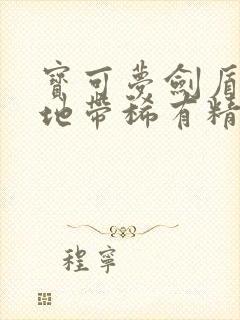 寶可夢劍盾
地帶稀有精
程寧